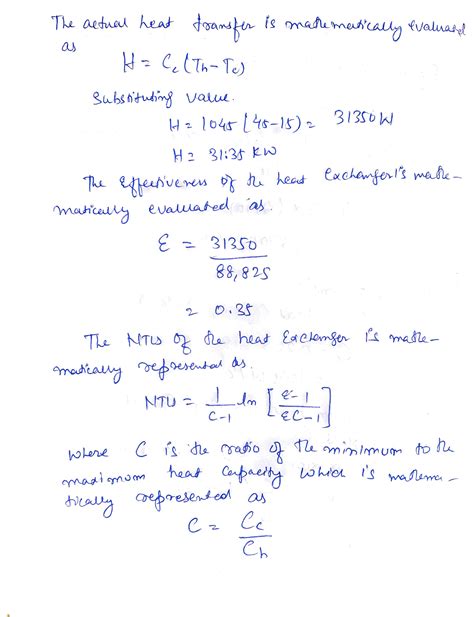 The actual heat transfer is mathematically evaluated
as
H = Cc (Th - Tc)
Substituting value.
H = 1045 (45-15) = 31350 W
H = 31.35 KW
The effectiveness of the heat Exchanger is mathe-
matically evaluated as.
ε = 31350 / 88,825
= 0.35
The NTU of the heat Exchanger is mathe-
matically represented as.
NTU = 1/(C-1) ln [ (ε-1)/(εC-1) ]
where C is the ratio of the minimum to the
maximum heat Capacity which is mathema-
tically represented as
C = Cc / Ch